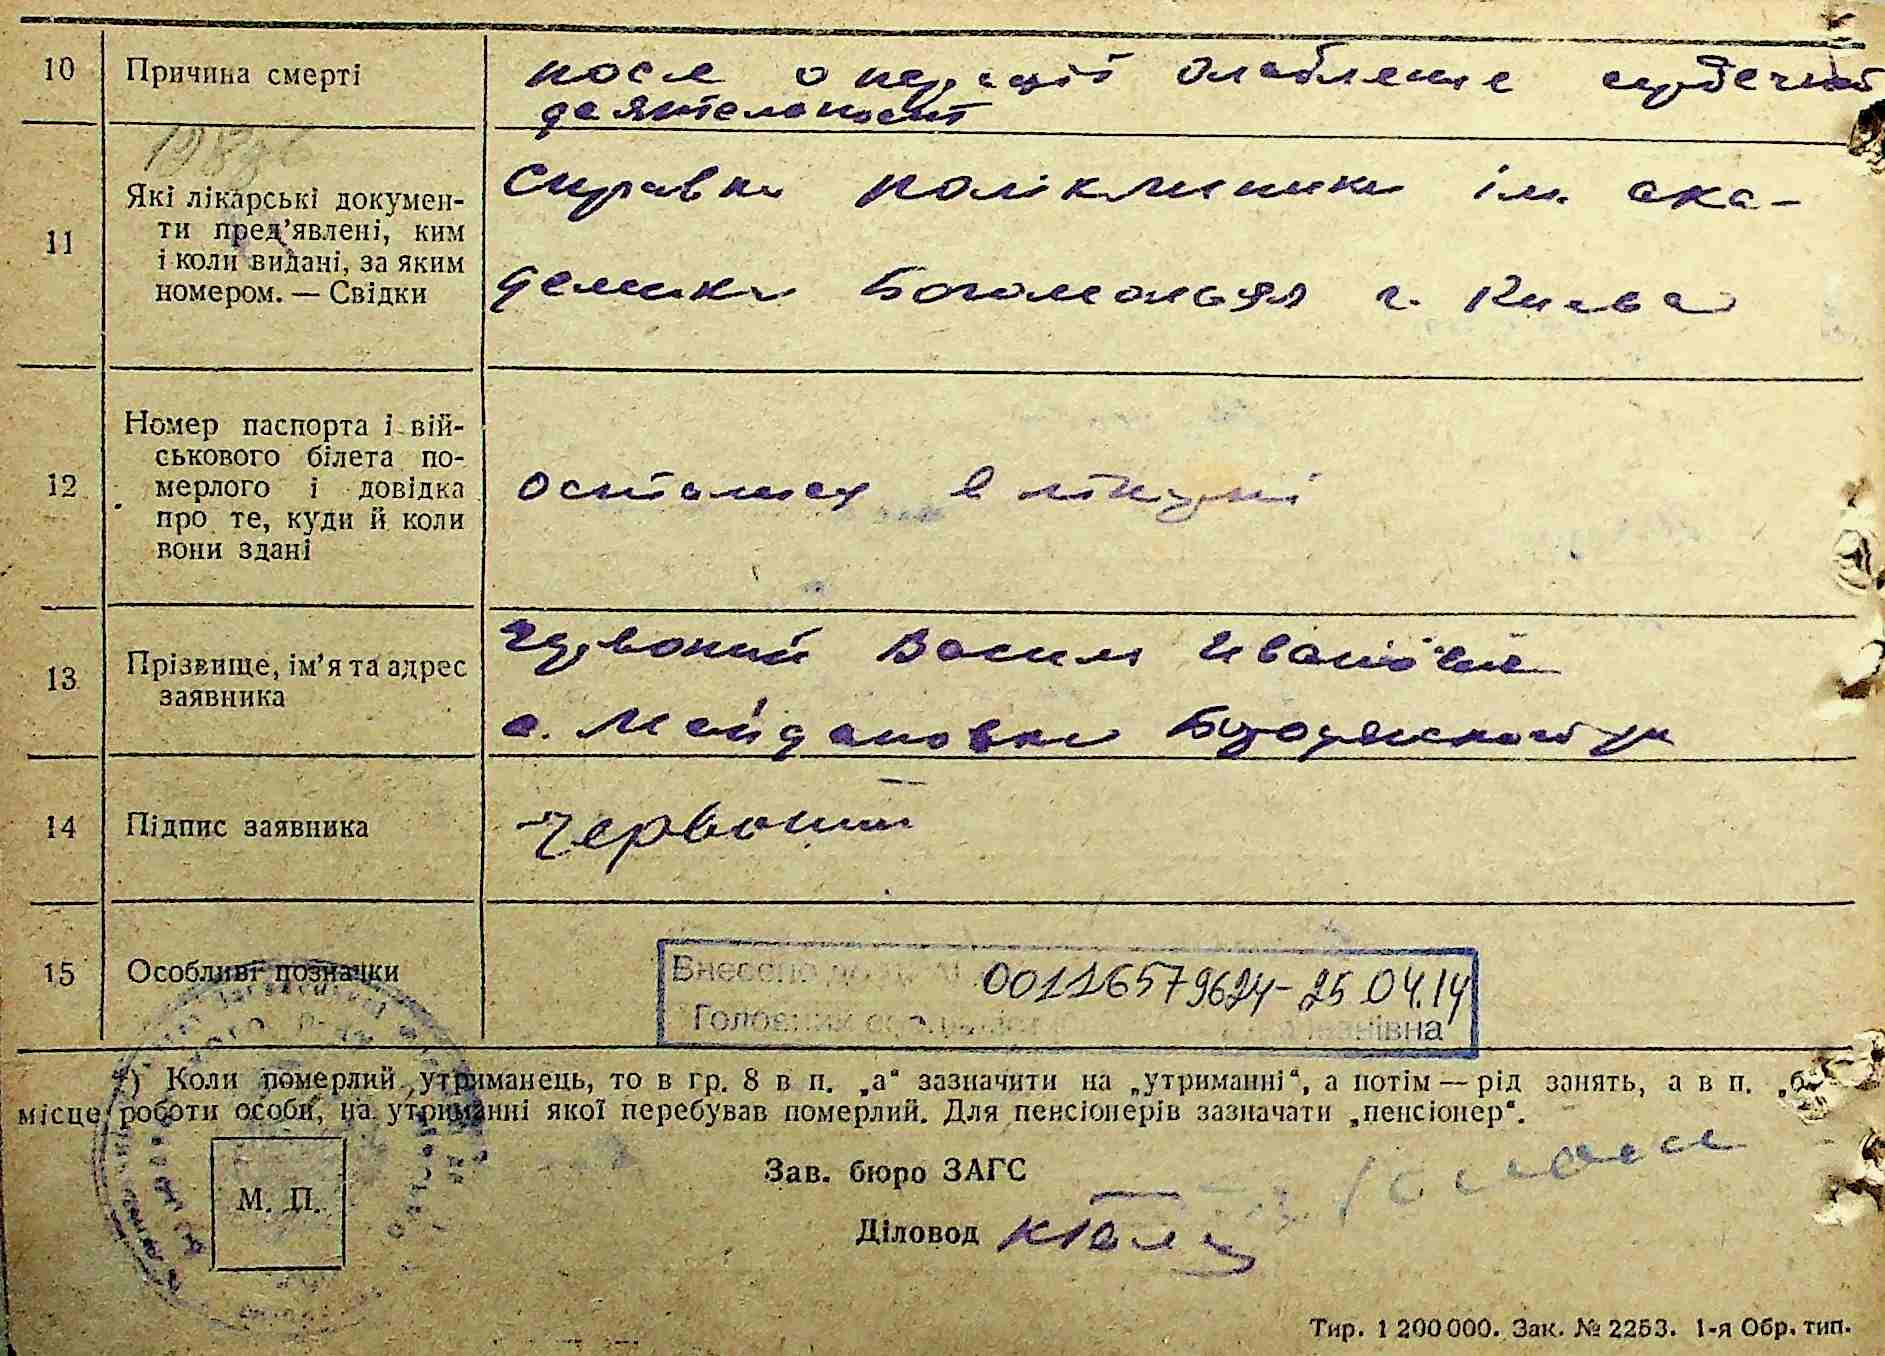 10 Причина смерті
после операції ослабление сердечной
деятельности
11 Які лікарські докумен-
ти пред'явлені, ким
і коли видані, за яким
номером. — Свідки
Справка поліклиники ім. ака-
демика Богомольця г. Киева
12 Номер паспорта і вій-
ськового білета по-
мерлого і довідка
про те, куди й коли
вони здані
остался в
13 Прізвище, ім'я та адрес
заявника
Червоний Василь Иванович
с. Майдановка Бородянского р-н
14 Підпис заявника
Червоний
15 Особливі позначки
Внесено до
00116579624- 25.04.14
Головний спеціаліст Іванівна
*) Коли померлий утриманець, то в гр. 8 в п. „а“ зазначити на „утриманні“, а потім — рід занять, а в п. „б“
місце роботи особи, на утриманні якої перебував померлий. Для пенсіонерів зазначати „пенсіонер“.
М. П.
Зав. бюро ЗАГС
Діловод
Тир. 1 200 000. Зак. № 2253. 1-я Обр. тип.